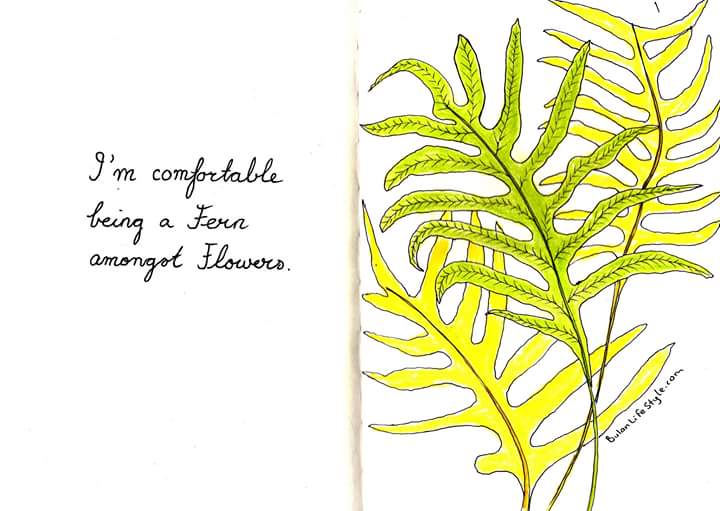 I'm comfortable
being a Fern
amongst Flowers.
ButanLifeStyle.com